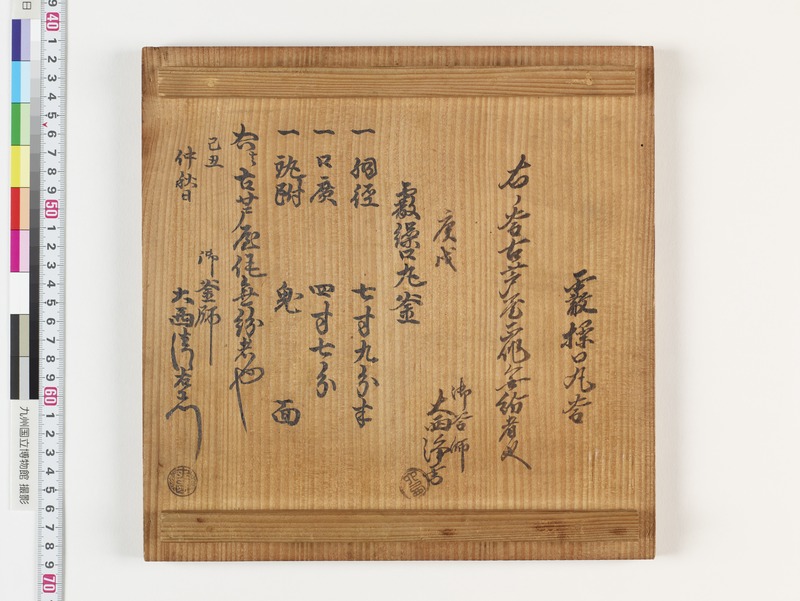 霰操口丸釜
右ノ釜古芦屋作無紛者也
庚戌
御釜師
大西浄
霰繰口丸釜
一 胴径 七寸九分半
一 口廣 四寸七分
一 鐶附 鬼面
右ハ古芦屋作無紛者也
己丑
仲秋日
御釜師
大西清右衛門
九州国立博物館 撮影
40 1 2 3 4 5 6 7 8 9 50 1 2 3 4 5 6 7 8 9 60 1 2 3 4 5 6 7 8 9 70